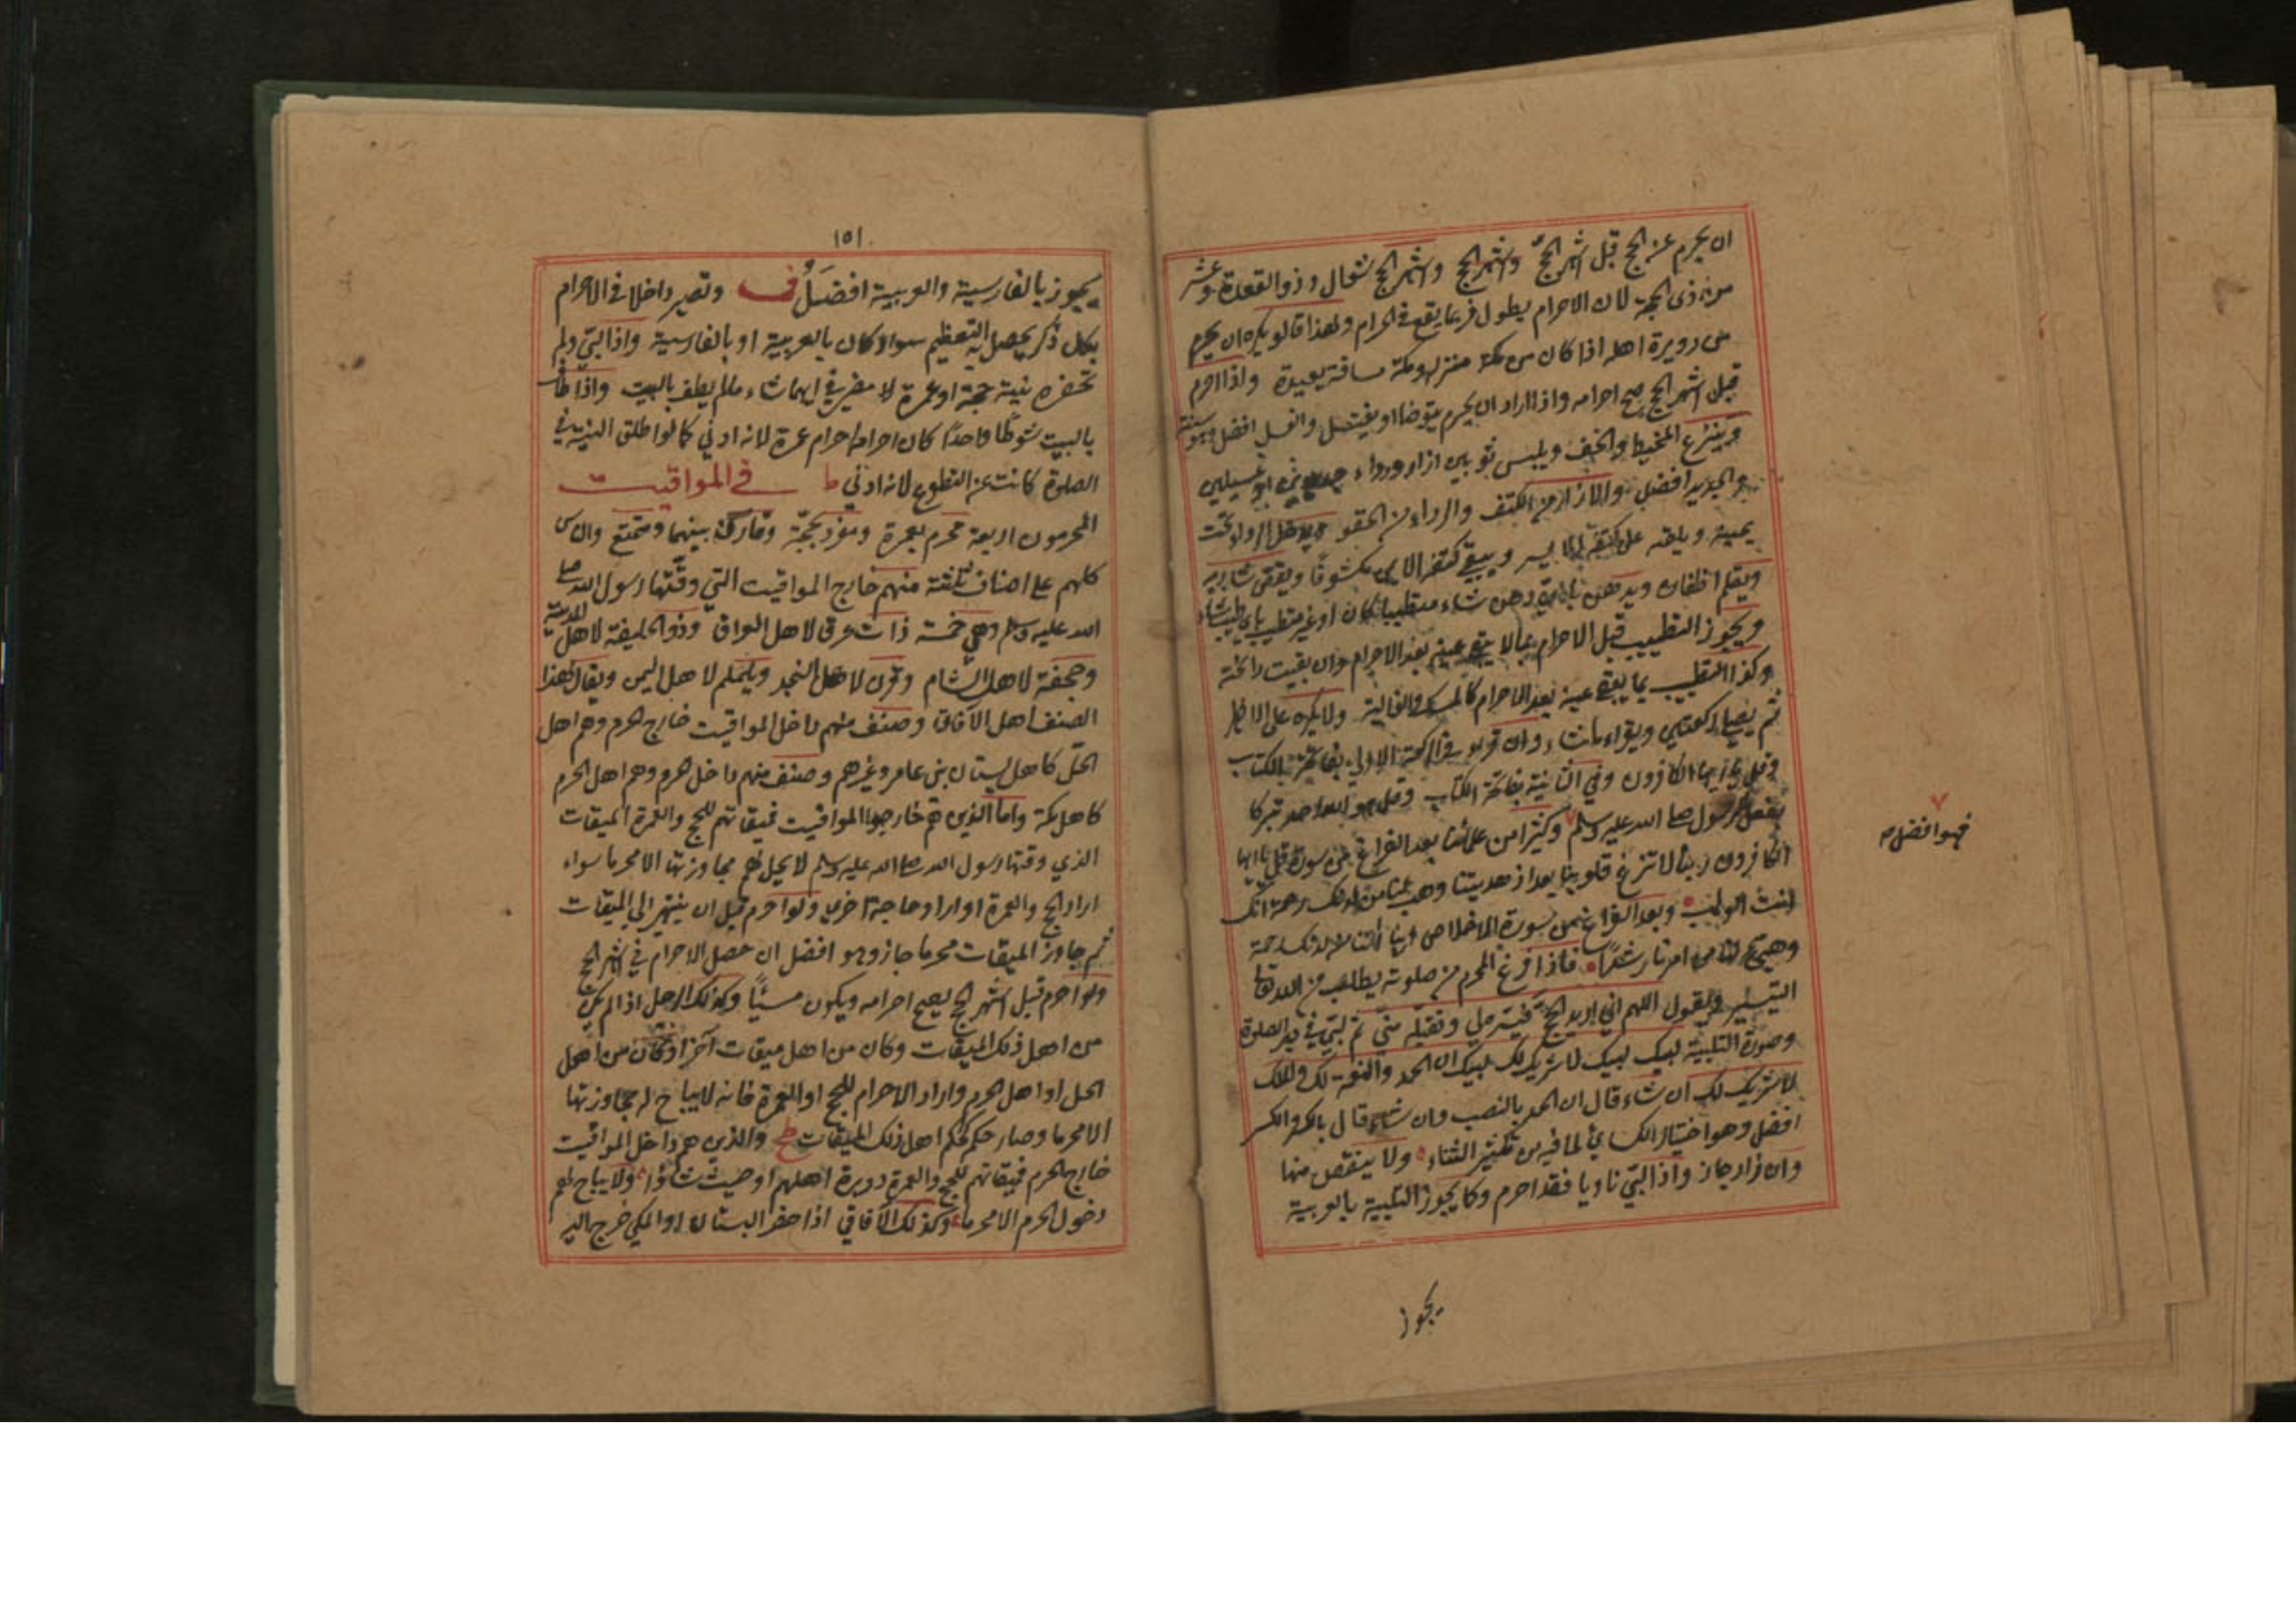 ان يحرم عن الحج قبل اشهر الحج واشهر الحج واشهر الحج شوال وذو القعدة وعشر
من ذى الحجة لان الاحرام يطول فربما يقع فى الحرام ولهذا قالو يكره ان يحرم
من دويرة اهله اذا كان من مكة منزله ومكة مسافة بعيدة واذا احرم
قبل اشهر الحج صح احرامه واذا اراد ان يحرم يتوضا او يغتسل والغسل افضل وهو سنة
وينزع المخيط والخف ويلبس ثوبين ازار ورداء جديدين او غسيلين
والجديد افضل والازار من الكتف والرداء من الحقو ويدخل الرداء تحت
يمينه ويلقه على كتفه الايسر ويبقى كتفه الايمن مكشوفا ويقص شاربه
ويقلم اظفاره ويدهن باى دهن شاء مطيبا كان او غير مطيب
ويجوز التطييب قبل الاحرام بما لا يبقى عينه بعد الاحرام وان بقيت رائحته
وكذا التطيب بما يبقى عينه بعد الاحرام كالمسك والغالية ولا يكره على الاظهر
ثم يصلى ركعتين ويقراء ماشاء وان قراء فى الركعة الاولى بفاتحة الكتاب
وقل يا ايها الكافرون وفى الثانية بفاتحة الكتاب وقل هو الله احد تبركا
بفعل الرسول صلى الله عليه وسلم وكثيرا من علمائنا بعد الفراغ من سورة قل يا ايها
الكافرون ربنا لا تزغ قلوبنا بعد اذ هديتنا وهب لنا من لدنك رحمة انك
انت الوهاب وبعد الفراغ من سورة الاخلاص ربنا اتنا من لدنك رحمة
وهيئ لنا من امرنا رشدا فاذا فرغ المحرم من صلوته يطلب من الله تعالى
التيسير ويقول اللهم انى اريد الحج فيسره لى وتقبله منى ثم لبى فى دبر الصلوة
وصورة التلبية لبيك لبيك لا شريك لك لبيك ان الحمد والنعمة لك والملك
لا شريك لك ان شاء قال ان الحمد بالنصب وان شاء قال بالكسر والكسر
افضل وهو اختيار الكسائى لما فيه من تكثير الثناء ولا ينقص منها
وان زاد جاز واذا لبى ناويا فقد احرم وكما يجوز التلبية بالعربية
فهو افضل صح
يجوز
١٥١
يجوز بالفارسية والعربية افضل ف وتصير داخلا فى الاحرام
بكل ذكر يحصل به التعظيم سواء كان بالعربية او بالفارسية واذا لبى ولم
تحضره نية حجة او عمرة لا مضى فى ايهما شاء مالم يطف بالبيت واذا طاف
بالبيت شوطا واحدا كان احرامه احرام عمرة لانه ادنى كما لو اطلق النية فى
الصلوة كانت عن التطوع لانه ادنى ط فى المواقيت
المحرمون اربعة محرم بعمرة ومفرد بحجة وقارن بينهما ومتمتع والناس
كلهم على اصناف ثلثة منهم خارج المواقيت التى وقتها رسول الله صلى
الله عليه وسلم وهى خمسة ذات عرق لاهل العراق وذو الحليفة لاهل المدينة
وجحفة لاهل الشام وقرن لاهل النجد ويلملم لاهل اليمن ويقال لهذا
الصنف اهل الآفاق وصنف منهم داخل المواقيت خارج الحرم وهم اهل
الحل كاهل بستان بنى عامر وغيرهم وصنف منهم داخل الحرم وهم اهل الحرم
كاهل مكة واما الذين هم خارجوا المواقيت فميقاتهم للحج والعمرة الميقات
الذي وقتها رسول الله صلى الله عليه وسلم لا يحل لهم مجاوزتها الا محرما سواء
اراد الحج والعمرة او اراد حاجة اخرى ولو احرم قبل ان ينتهى الى الميقات
ثم جاوز الميقات محرما جاز وهو افضل ان حصل الاحرام فى اشهر الحج
ولو احرم قبل اشهر الحج يصح احرامه ويكون مسيئا وكذلك الرجل اذا لم يكن
من اهل ذلك الميقات وكان من اهل ميقات آخر او كان من اهل
الحل او اهل الحرم واراد الاحرام للحج او العمرة فانه لا يباح له مجاوزتها
الا محرما وصار حكمه حكم اهل ذلك الميقات ط والذين هم داخل المواقيت
خارج الحرم فميقاتهم للحج والعمرة دويرة اهلهم او حيث شاؤا ولا يباح لهم
دخول الحرم الا محرما وكذلك الآفاقى اذا حضر البستان او المكى خرج اليه